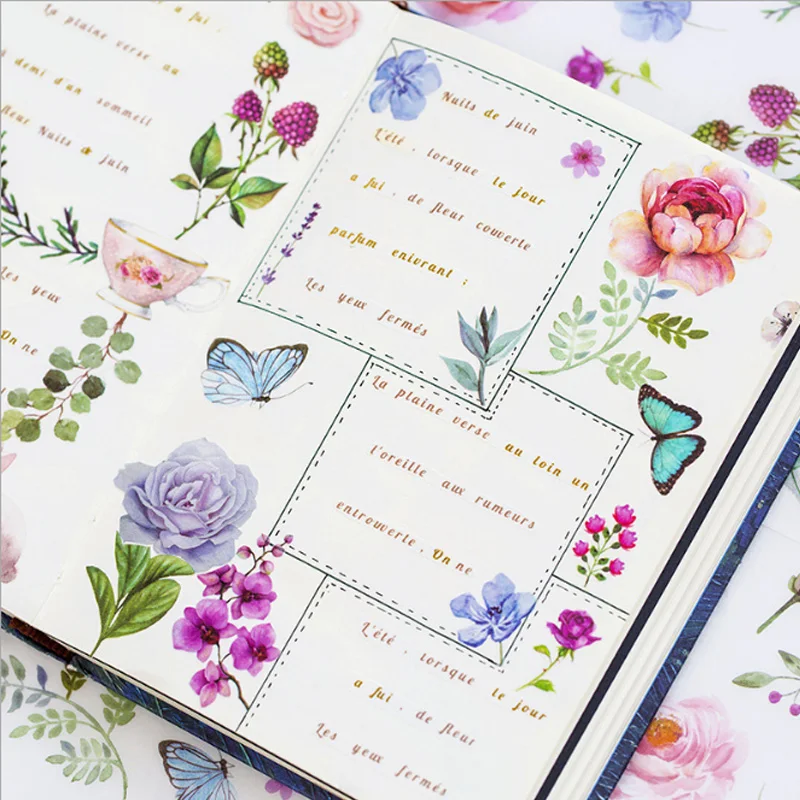 a fui .
La plaine verse au
demi d'un sommeil
fleur Nuits de juin
Les yeux
On ne
Nuits de juin
L'été , lorsque le jour
a fui , de fleur couverte
parfum enivrant ;
Les yeux fermés
La plaine verse au loin un
l'oreille aux rumeurs
entrouverte, On ne
L'été , lorsque le jour
a fui , de fleur
Les yeux fermés